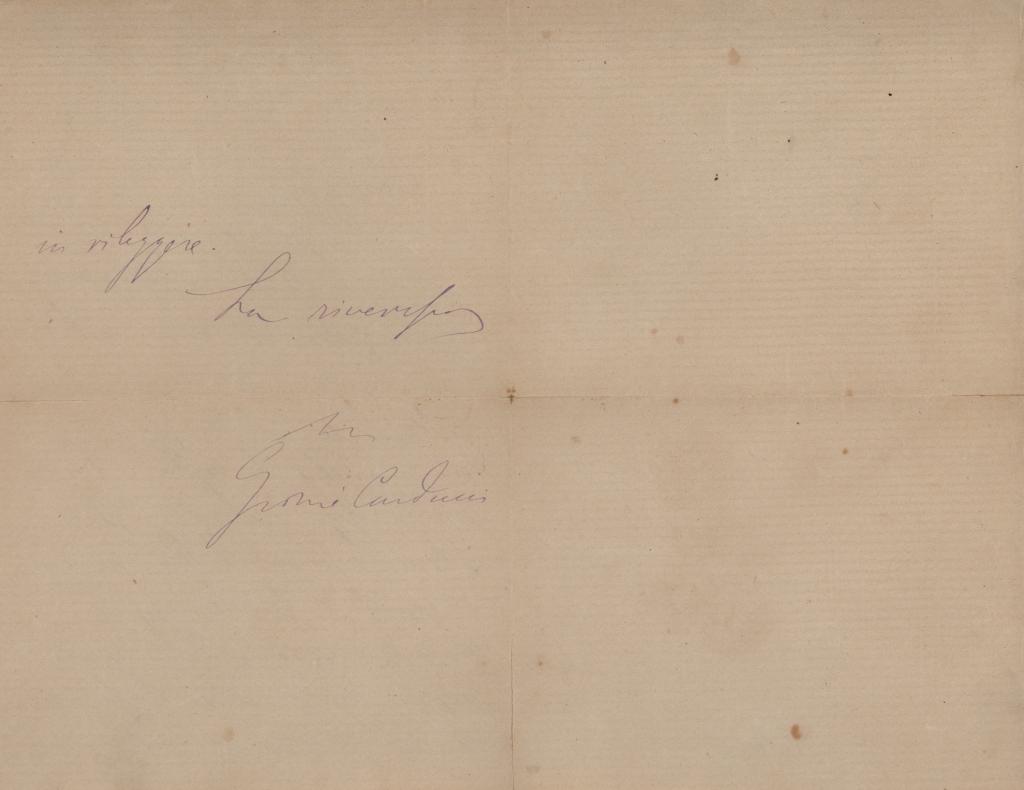 in rileggere.
La riverisco
Suo
Giosuè Carducci